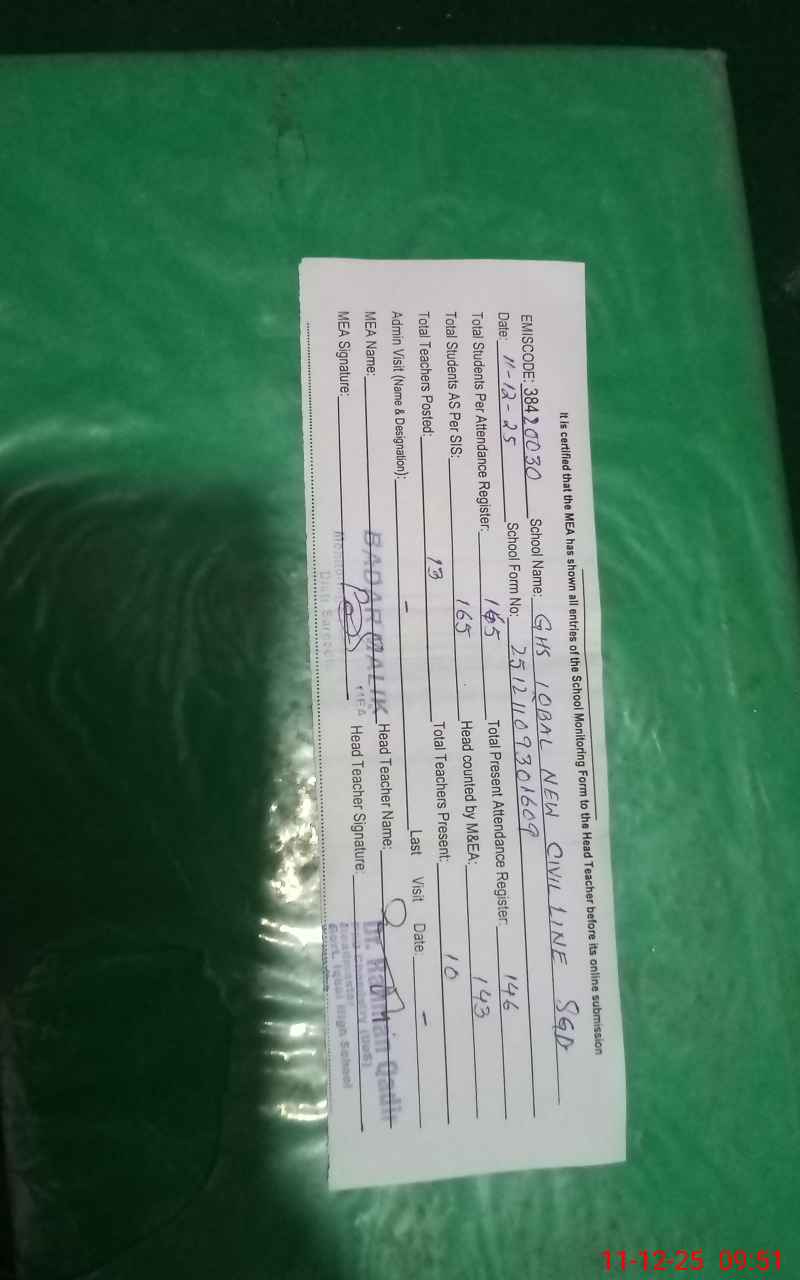 It is certified that the MEA has shown all entries of the School Monitoring Form to the Head Teacher before its online submission
EMISCODE: 38420030 School Name: GHS IQBAL NEW CIVIL LINE SGD
Date: 11-12-25 School Form No: 25121109301609
Total Students Per Attendance Register: 165 Total Present Attendance Register: 146
Total Students AS Per SIS: 165 Head counted by M&EA: 143
Total Teachers Posted: 13 Total Teachers Present: 10
Admin Visit (Name & Designation): - Last Visit Date: -
MEA Name: BADAR MALIK Head Teacher Name: Dr. Qadir
MEA
MEA Signature: Head Teacher Signature:
Headmaster
Govt. Iqbal High School
11-12-25 09:51